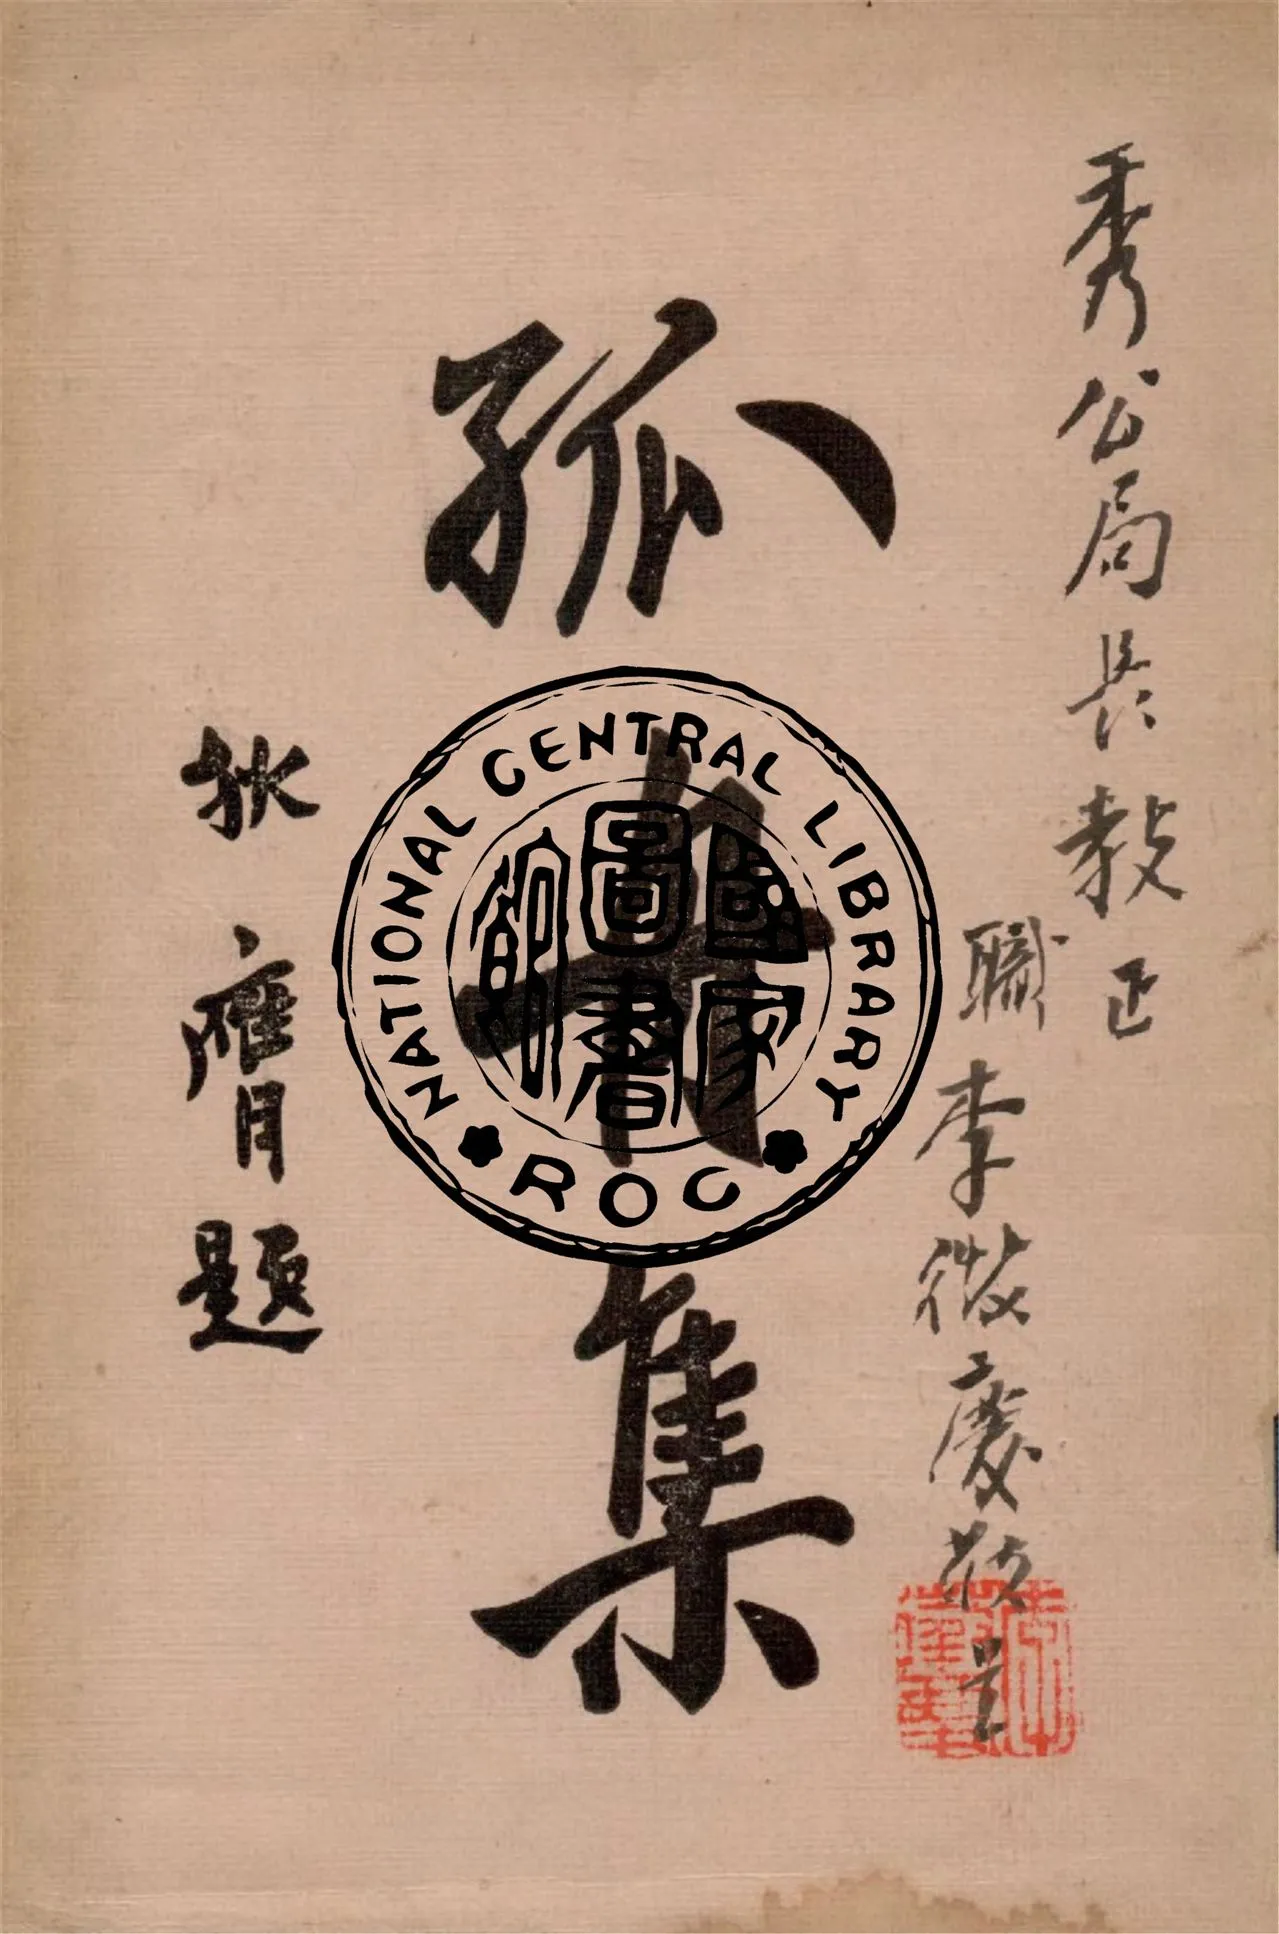 秀公局長教正
職李微慶敬呈
孤舟集
狄膺題
NATIONAL CENTRAL LIBRARY
國家圖書館
ROC